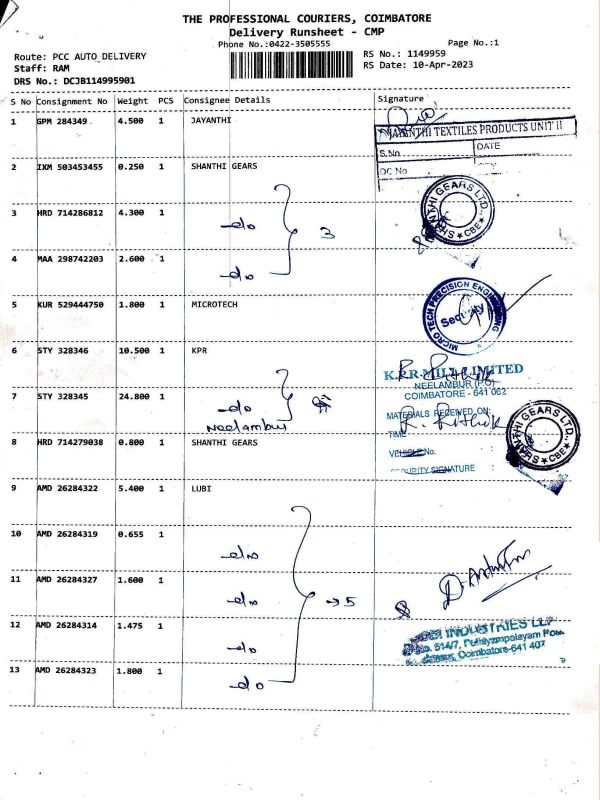 THE PROFESSIONAL COURIERS, COIMBATORE
Delivery Runsheet - CMP
Phone No.:0422-3505555 Page No.:1
Route: PCC AUTO DELIVERY RS No.: 1149959
Staff: RAM RS Date: 10-Apr-2023
DRS No.: DCJB114995901
S No Consignment No Weight PCS Consignee Details Signature
1 GPM 284349 4.500 1 JAYANTHI
JAYANTHI TEXTILES PRODUCTS UNIT II
S.No DATE
DC No
2 IXM 503453455 0.250 1 SHANTHI GEARS
SHANTHI GEARS LTD., CBE
3 HRD 714286812 4.300 1 -do 3
4 MAA 298742203 2.600 1 -do
MICRO TECH PRECISION ENGINEERING
Security
5 KUR 529444750 1.800 1 MICROTECH
6 STY 328346 10.500 1 KPR
K.P.R. MILL LIMITED
NEELAMBUR (P.O)
COIMBATORE - 641 062
7 STY 328345 24.800 1 -do
Neelambur
MATERIALS RECEIVED ON:
TIME
VEHICLE No.
SECURITY SIGNATURE :
SHANTHI GEARS LTD., CBE
8 HRD 714279038 0.800 1 SHANTHI GEARS
9 AMD 26284322 5.400 1 LUBI
10 AMD 26284319 0.655 1 -do
11 AMD 26284327 1.600 1 -do 5
12 AMD 26284314 1.475 1 -do
INDUSTRIES LLP
No. 514/7, Pothiyampalayam
Coimbatore-641 407
13 AMD 26284323 1.800 1 -do